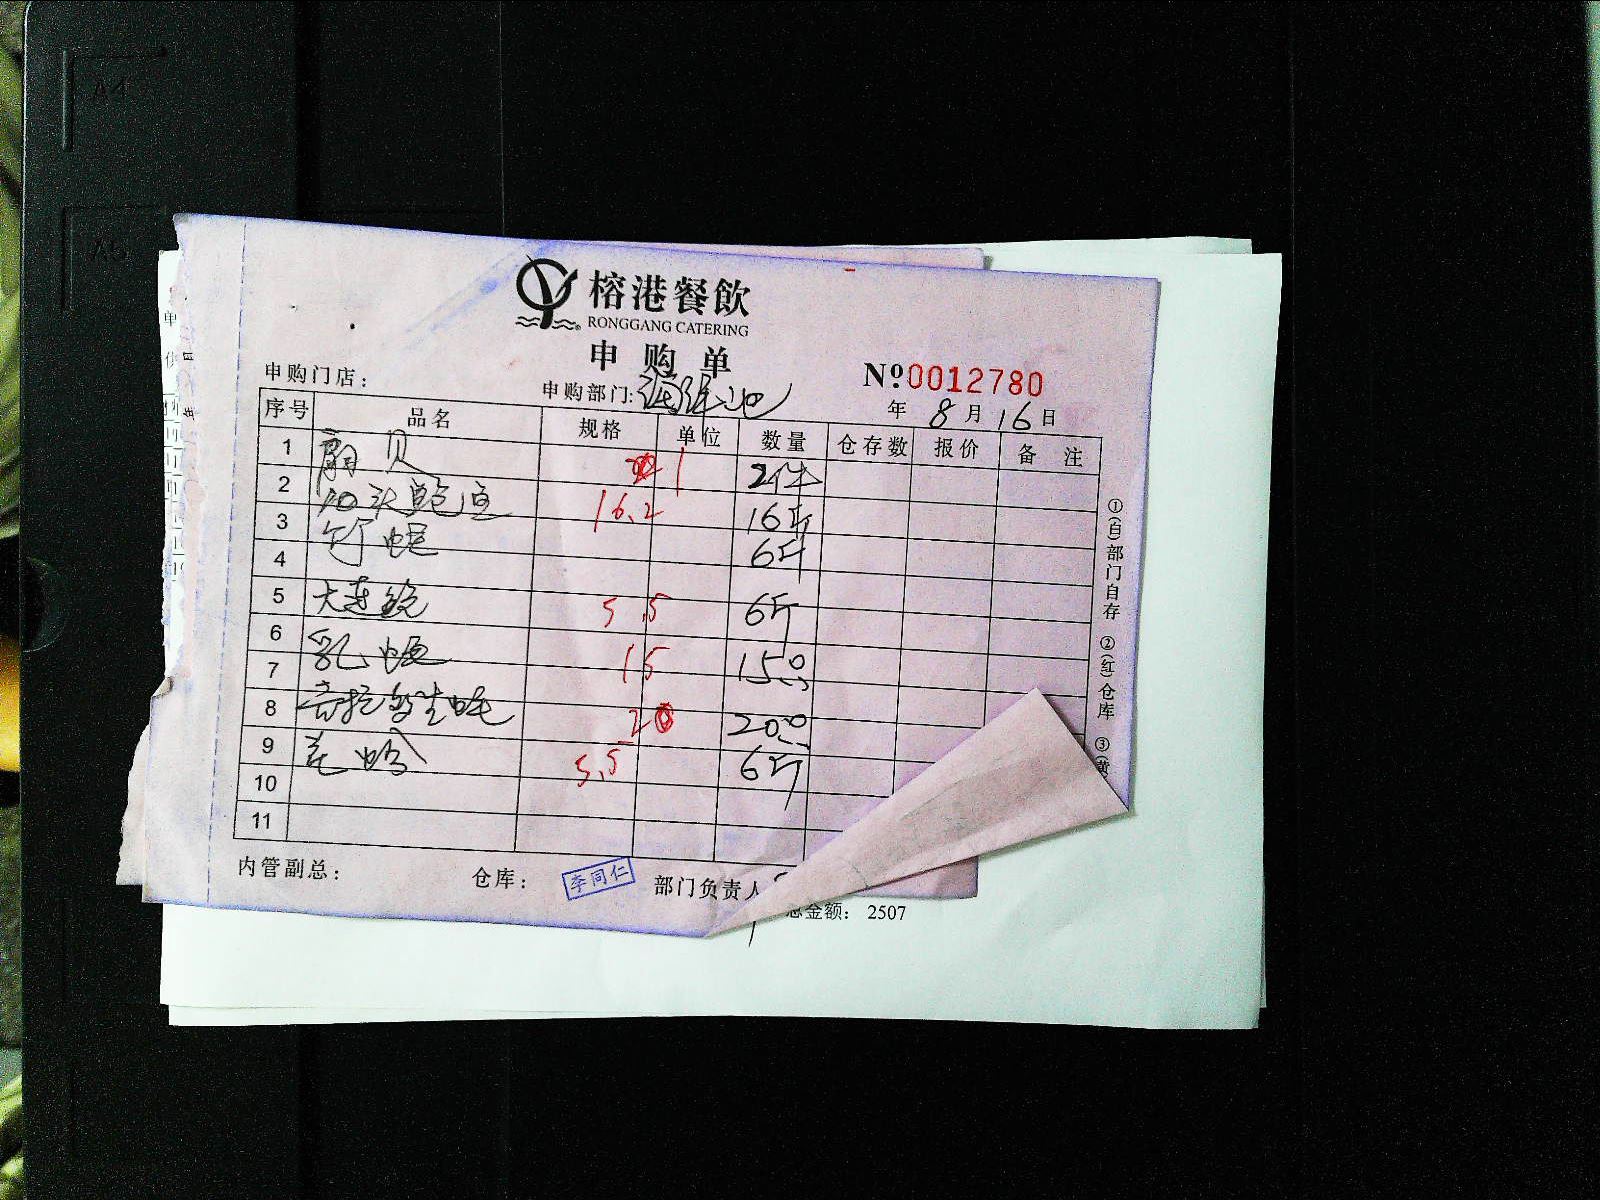 榕港餐飲
RONGGANG CATERING
申购单
申购门店： 申购部门: 海鲜池 №0012780
年 8 月 16 日
序号 品名 规格 单位 数量 仓存数 报价 备 注
1 扇贝 1 2件
2 10头鲍鱼 16.2 16斤
3 钉螺 6斤
4
5 大连鲍 5.5 6斤
6 乳螺 15 15
7
8 生蚝 20 20
9 毛蛤 5.5 6斤
10
11
内管副总： 仓库： 李同仁 部门负责人
①(白)部门自存 ②(红)仓库 ③(黄
总金额： 2507
A4
A5